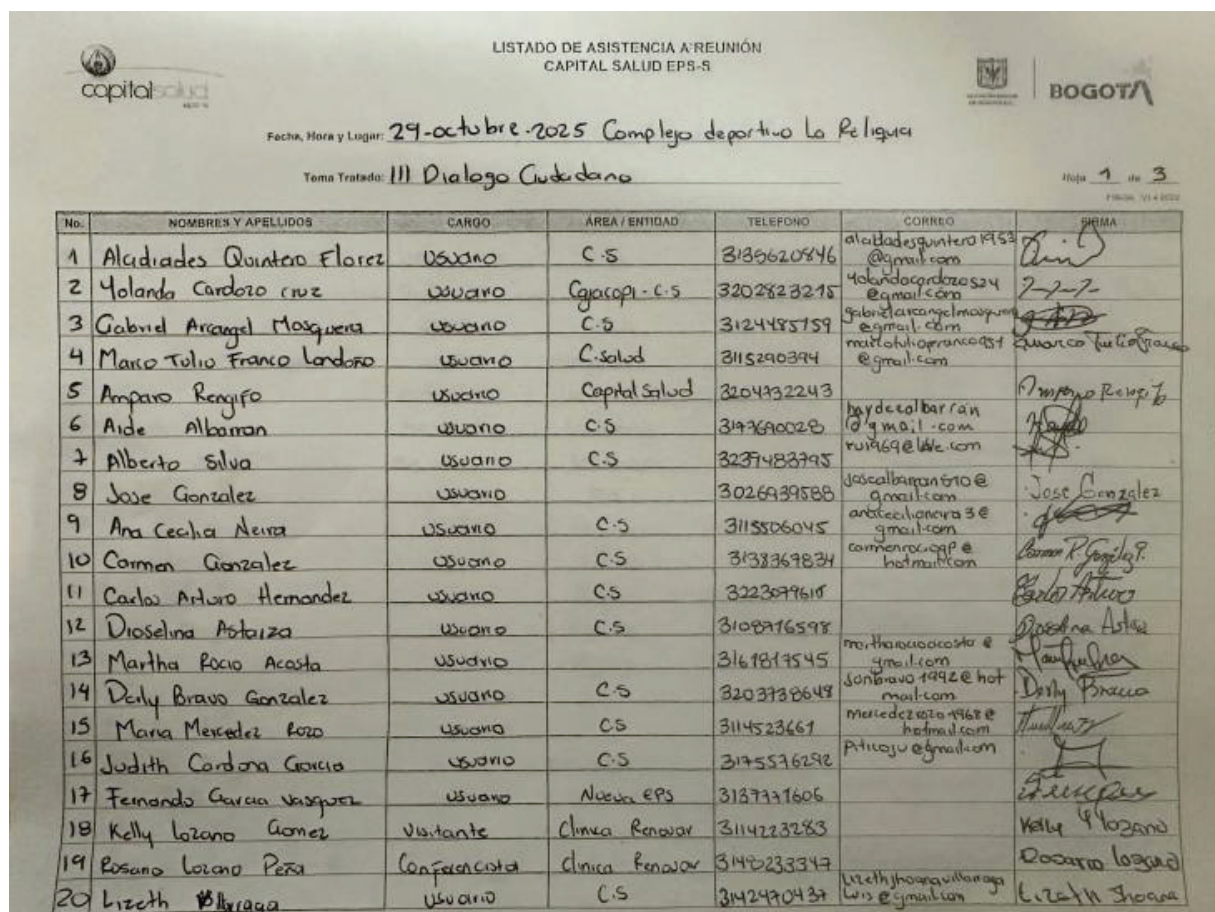 LISTADO DE ASISTENCIA A REUNIÓN
CAPITAL SALUD EPS-S
capitalsalud
BOGOTÁ
Fecha, Hora y Lugar: 29-octubre-2025 Complejo deportivo La Reliquia
Tema Tratado: III Dialogo Ciudadano
Hoja 1 de 3
No. NOMBRES Y APELLIDOS CARGO ÁREA / ENTIDAD TELEFONO CORREO FIRMA
1 Quintero Florez usuario C.S 3135620846 @gmail.com
2 Yolanda Cardozo cruz usuario Cajacopi - C.S 3202823215 yolandacardozo524 @gmail.com
3 Gabriel Arcangel Mosquera usuario C.S 3124485759 @gmail.com
4 Marco Tulio Franco Londoño usuario C.Salud 3115290394 @gmail.com Marco Tulio Franco
5 Amparo Rengifo usuario Capital Salud 3204732243 Amparo Rengifo
6 Aide Albarran usuario C.S 3147690028 haydecalbarrán @gmail.com
7 Alberto Silva usuario C.S 3239483795
8 Jose Gonzalez usuario 3026939588 josealbarran610@ gmail.com Jose Gonzalez
9 Ana Cecilia Neira usuario C.S 3115506045 gmail.com
10 Carmen Gonzalez usuario C.S 3138369834 carmenrociogp@ hotmail.com Carmen R. González P.
11 Carlos Arturo Hernandez usuario C.S Carlos Arturo
12 Dioselina Astaiza usuario C.S 3108976598
13 Martha Rocio Acosta usuario 3161817545 martharocioacosta@ gmail.com
14 Derly Bravo Gonzalez usuario C.S 3203738648 sonbravo1992@hot mail.com Derly Bravo
15 Maria Mercedez Rozo usuario C.S 3114523661 mercedezrozo1968@ hotmail.com
16 Judith Cardona Garcia usuario C.S 3175576292 Piticoju@gmail.com
17 Fernando Garcia Vasquez usuario Nueva EPS 3137771606
18 Kelly lozano Gomez Visitante Clinica Renovar 3114223283 Kelly Y lozano
19 Rosario Lozano Peña Conferencista Clinica Renovar 3148233347 Rosario lozano
20 Lizeth usuario C.S 3142470437 Lizeth Jhoana